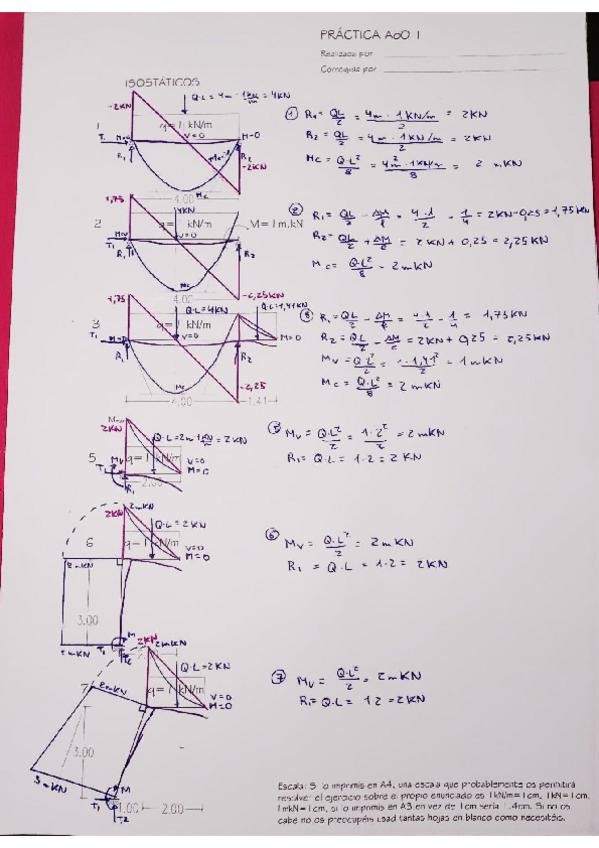 PRÁCTICA AdO 1
Realizada por
Corregida por
ISOSTÁTICOS
-2KN
Q·L = 4m · 1KN/m = 4KN
1
q = 1 kN/m
V=0
M=0
T1
R1
R2
-2KN
Mc
4.00
① R1 = QL/2 = 4m · 1KN/m / 2 = 2KN
R2 = QL/2 = 4m · 1KN/m / 2 = 2KN
Mc = Q·L²/8 = 4m² · 1KN/m / 8 = 2 mKN
1,75
4KN
2
q = 1 kN/m
M = 1 m.kN
V=0
T1
R1
R2
Mc
4.00
-2,25KN
② R1 = QL/2 - ΔM/L = 4·1/2 - 1/4 = 2KN-0,25 = 1,75KN
R2 = QL/2 + ΔM/L = 2KN + 0,25 = 2,25KN
Mc = Q·L²/8 = 2mKN
1,75
Q·L=4KN
Q·L=1,41KN
3
q = 1 kN/m
V=0
M=0
M=0
T1
R1
R2
Mc
-2,25
4.00
1.41
③ R1 = QL/2 - ΔM/L = 4·1/2 - 1/4 = 1,75KN
R2 = QL/2 + ΔM/L = 2KN + 0,25 = 2,25KN
Mv = Q·L²/2 = 1·1,41²/2 = 1mKN
Mc = Q·L²/8 = 2mKN
2KN
Q·L = 2m · 1KN/m = 2KN
5
q = 1 kN/m
Mv
V=0
M=0
T1
R1
2.00
Mv = Q·L²/2 = 1·2²/2 = 2mKN
R1 = Q·L = 1·2 = 2KN
2mKN
2KN
Q·L=2KN
6
q = 1 kN/m
V=0
M=0
2mKN
3.00
2mKN
T1
M
⑥ Mv = Q·L²/2 = 2mKN
R1 = Q·L = 1·2 = 2KN
2KN
2mKN
Q·L=2KN
7
2mKN
q = 1 kN/m
V=0
M=0
3.00
M
T1
T2
1.00
2.00
⑦ Mv = Q·L²/2 = 2mKN
R1 = Q·L = 1·2 = 2KN
Escala: Si lo imprimis en A4, una escala que probablemente os permitirá
resolver el ejercicio sobre el propio enunciado es 1kN/m=1cm, 1kN=1cm,
1mkN=1cm, si lo imprimis en A3 en vez de 1cm sería 1.4cm. Si no os
cabe no os preocupéis usad tantas hojas en blanco como necesitéis.